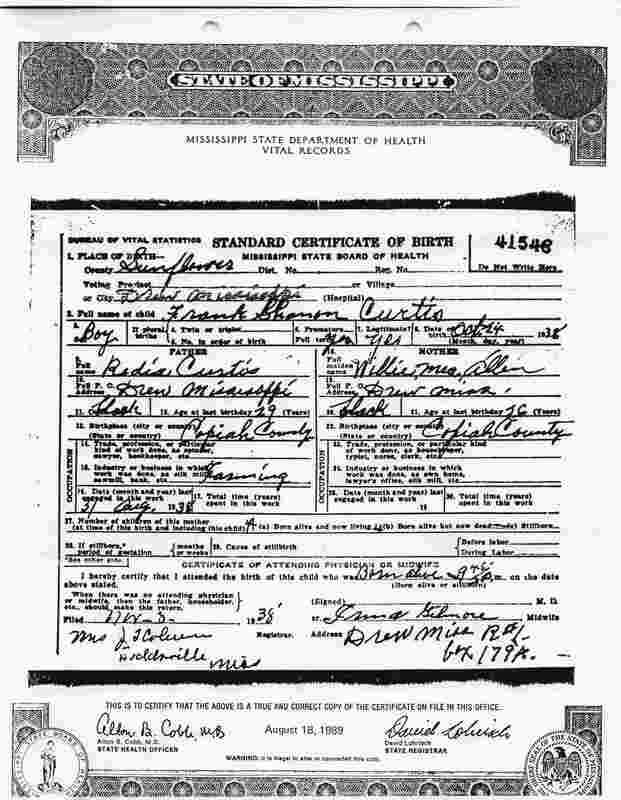 STATE OF MISSISSIPPI
MISSISSIPPI STATE DEPARTMENT OF HEALTH
VITAL RECORDS
BUREAU OF VITAL STATISTICS STANDARD CERTIFICATE OF BIRTH 41546
1. PLACE OF BIRTH— MISSISSIPPI STATE BOARD OF HEALTH
County Sunflower Dist. No. Reg. No. Do Not Write Here
Voting Precinct or Village
or City Drew Mississippi (Hospital)
2. Full name of child Frank Curtis
3. Boy If plural births 4. Twin or triplet 6. Premature 7. Legitimate? 8. Date of birth Oct 24 1938
5. No. in order of birth Full term yes Yes (Month, day, year)
FATHER MOTHER
9. Full name Curtis Full maiden name Willie Allen
Full P. O. Address Drew Mississippi Full P. O. Address Drew Miss.
11. Black 12. Age at last birthday 29 (Years) 20. Black 21. Age at last birthday 26 (Years)
Birthplace (city or county) Copiah County Birthplace (city or county) Copiah County
(State or country) (State or country)
OCCUPATION
Trade, profession, or particular kind of work done, as spinner, sawyer, bookkeeper, etc. Trade, profession, or particular kind of work done, as housekeeper, typist, nurse, clerk, etc.
15. Industry or business in which work was done, as silk mill, sawmill, bank, etc. Farming Industry or business in which work was done, as own home, lawyer's office, silk mill, etc.
16. Date (month and year) last engaged in this work 31 Aug. 1938 17. Total time (years) spent in this work Date (month and year) last engaged in this work 19 Total time (years) spent in this work
OCCUPATION
27. Number of children of this mother
(at time of this birth and including this child) (a) Born alive and now living (b) Born alive but now dead Stillborn
28. If stillborn, period of gestation months or weeks 29. Cause of stillbirth Before labor During Labor
*See other side.
CERTIFICATE OF ATTENDING PHYSICIAN OR MIDWIFE
I hereby certify that I attended the birth of this child who was Born alive m. on the date
above stated. (Born alive or stillborn)
When there was no attending physician or midwife, then the father, householder, etc., should make this return.
(Signed) M. D.
Filed Nov-3- 1938 or Gilmore Midwife
Mrs Registrar. Address Drew Miss
Miss Bx 179A.
THIS IS TO CERTIFY THAT THE ABOVE IS A TRUE AND CORRECT COPY OF THE CERTIFICATE ON FILE IN THIS OFFICE.
Alton B. Cobb, MD August 18, 1989 David Lohrisch
Alton B. Cobb, M.D. David Lohrisch
STATE HEALTH OFFICER STATE REGISTRAR
WARNING: It is illegal to alter or counterfeit this copy.